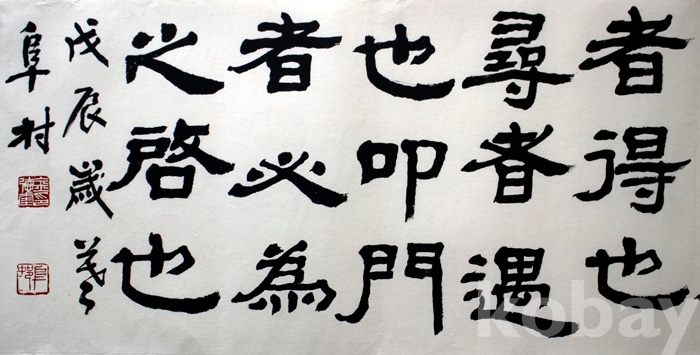 者得也
尋者遇
也叩門
者必為
之啓也
戊辰歲
阜村
kobay